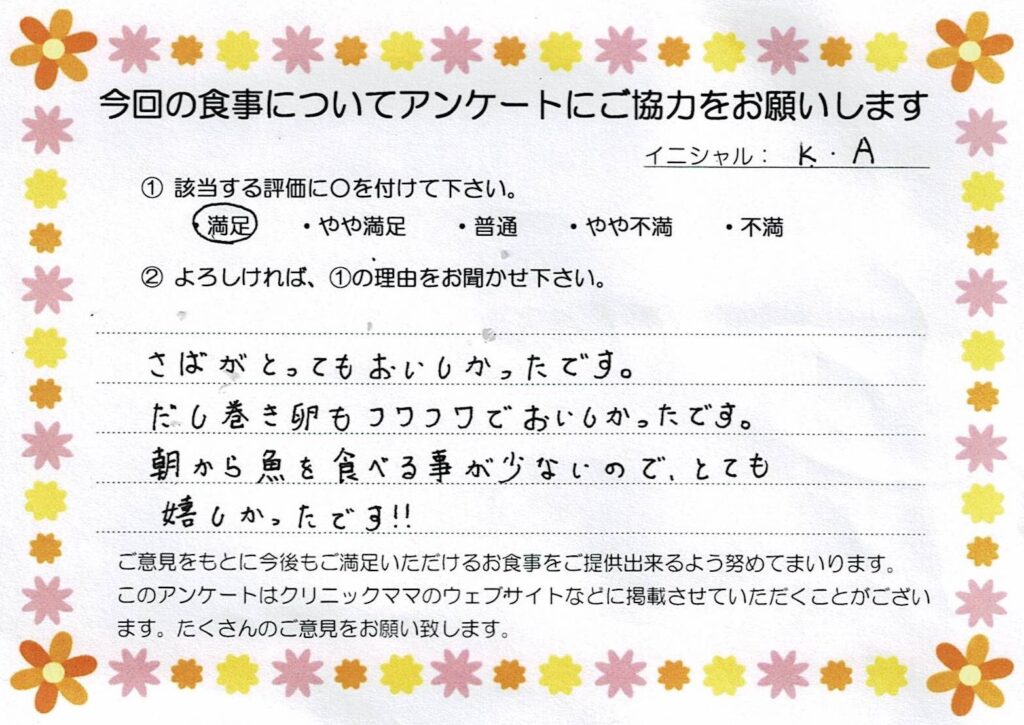 今回の食事についてアンケートにご協力をお願いします
イニシャル： K・A
① 該当する評価に〇を付けて下さい。
・満足 ・やや満足 ・普通 ・やや不満 ・不満
② よろしければ、①の理由をお聞かせ下さい。
さばがとってもおいしかったです。
だし巻き卵もフワフワでおいしかったです。
朝から魚を食べる事が少ないので、とても
嬉しかったです!!
ご意見をもとに今後もご満足いただけるお食事をご提供出来るよう努めてまいります。
このアンケートはクリニックママのウェブサイトなどに掲載させていただくことがござい
ます。たくさんのご意見をお願い致します。